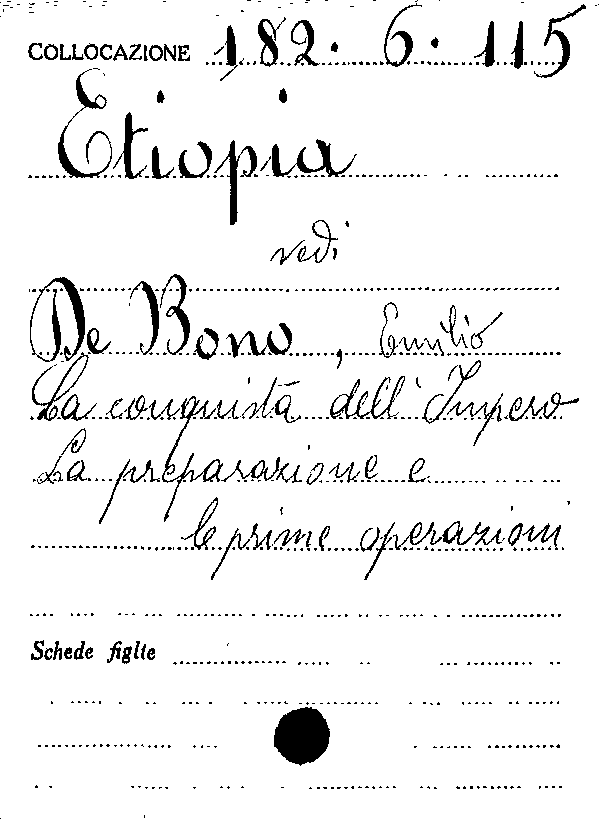 COLLOCAZIONE 182. 6. 115
Etiopia
vedi
De Bono, Emilio
La conquista dell'Impero
La preparazione e
le prime operazioni
Schede figlie